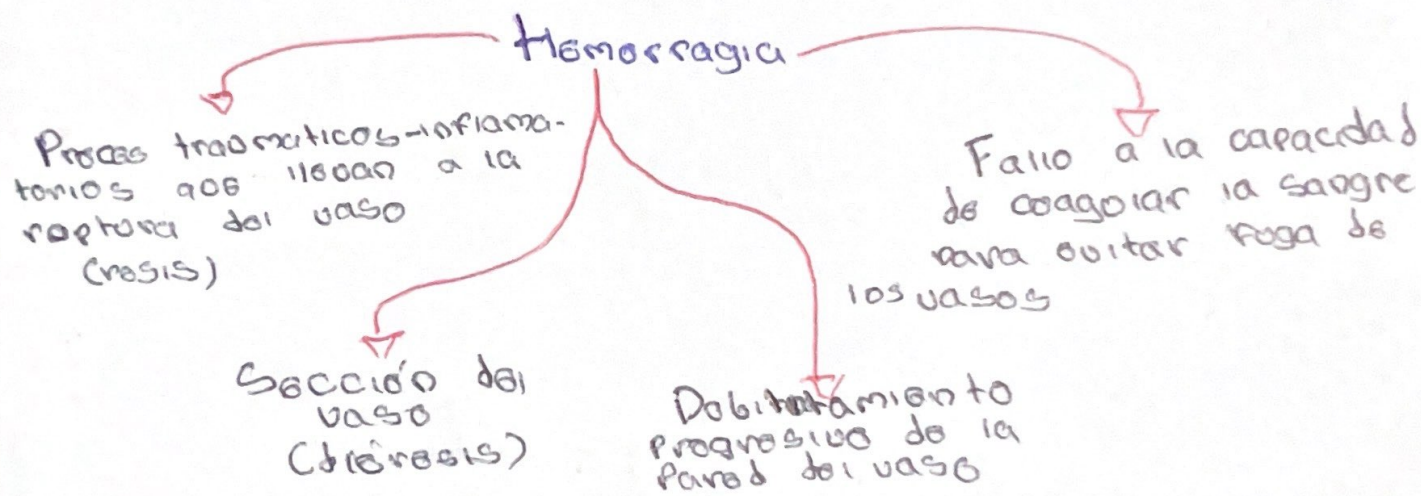 Hemorragia
Proceso traumaticos-inflama-
torios que llevan a la
ruptura del vaso
(rexsis)
Sección del
vaso
(diéresis)
Debilitamiento
progresivo de la
Pared del vaso
Fallo a la capacidad
de coagular la sangre
para evitar fuga de
los vasos